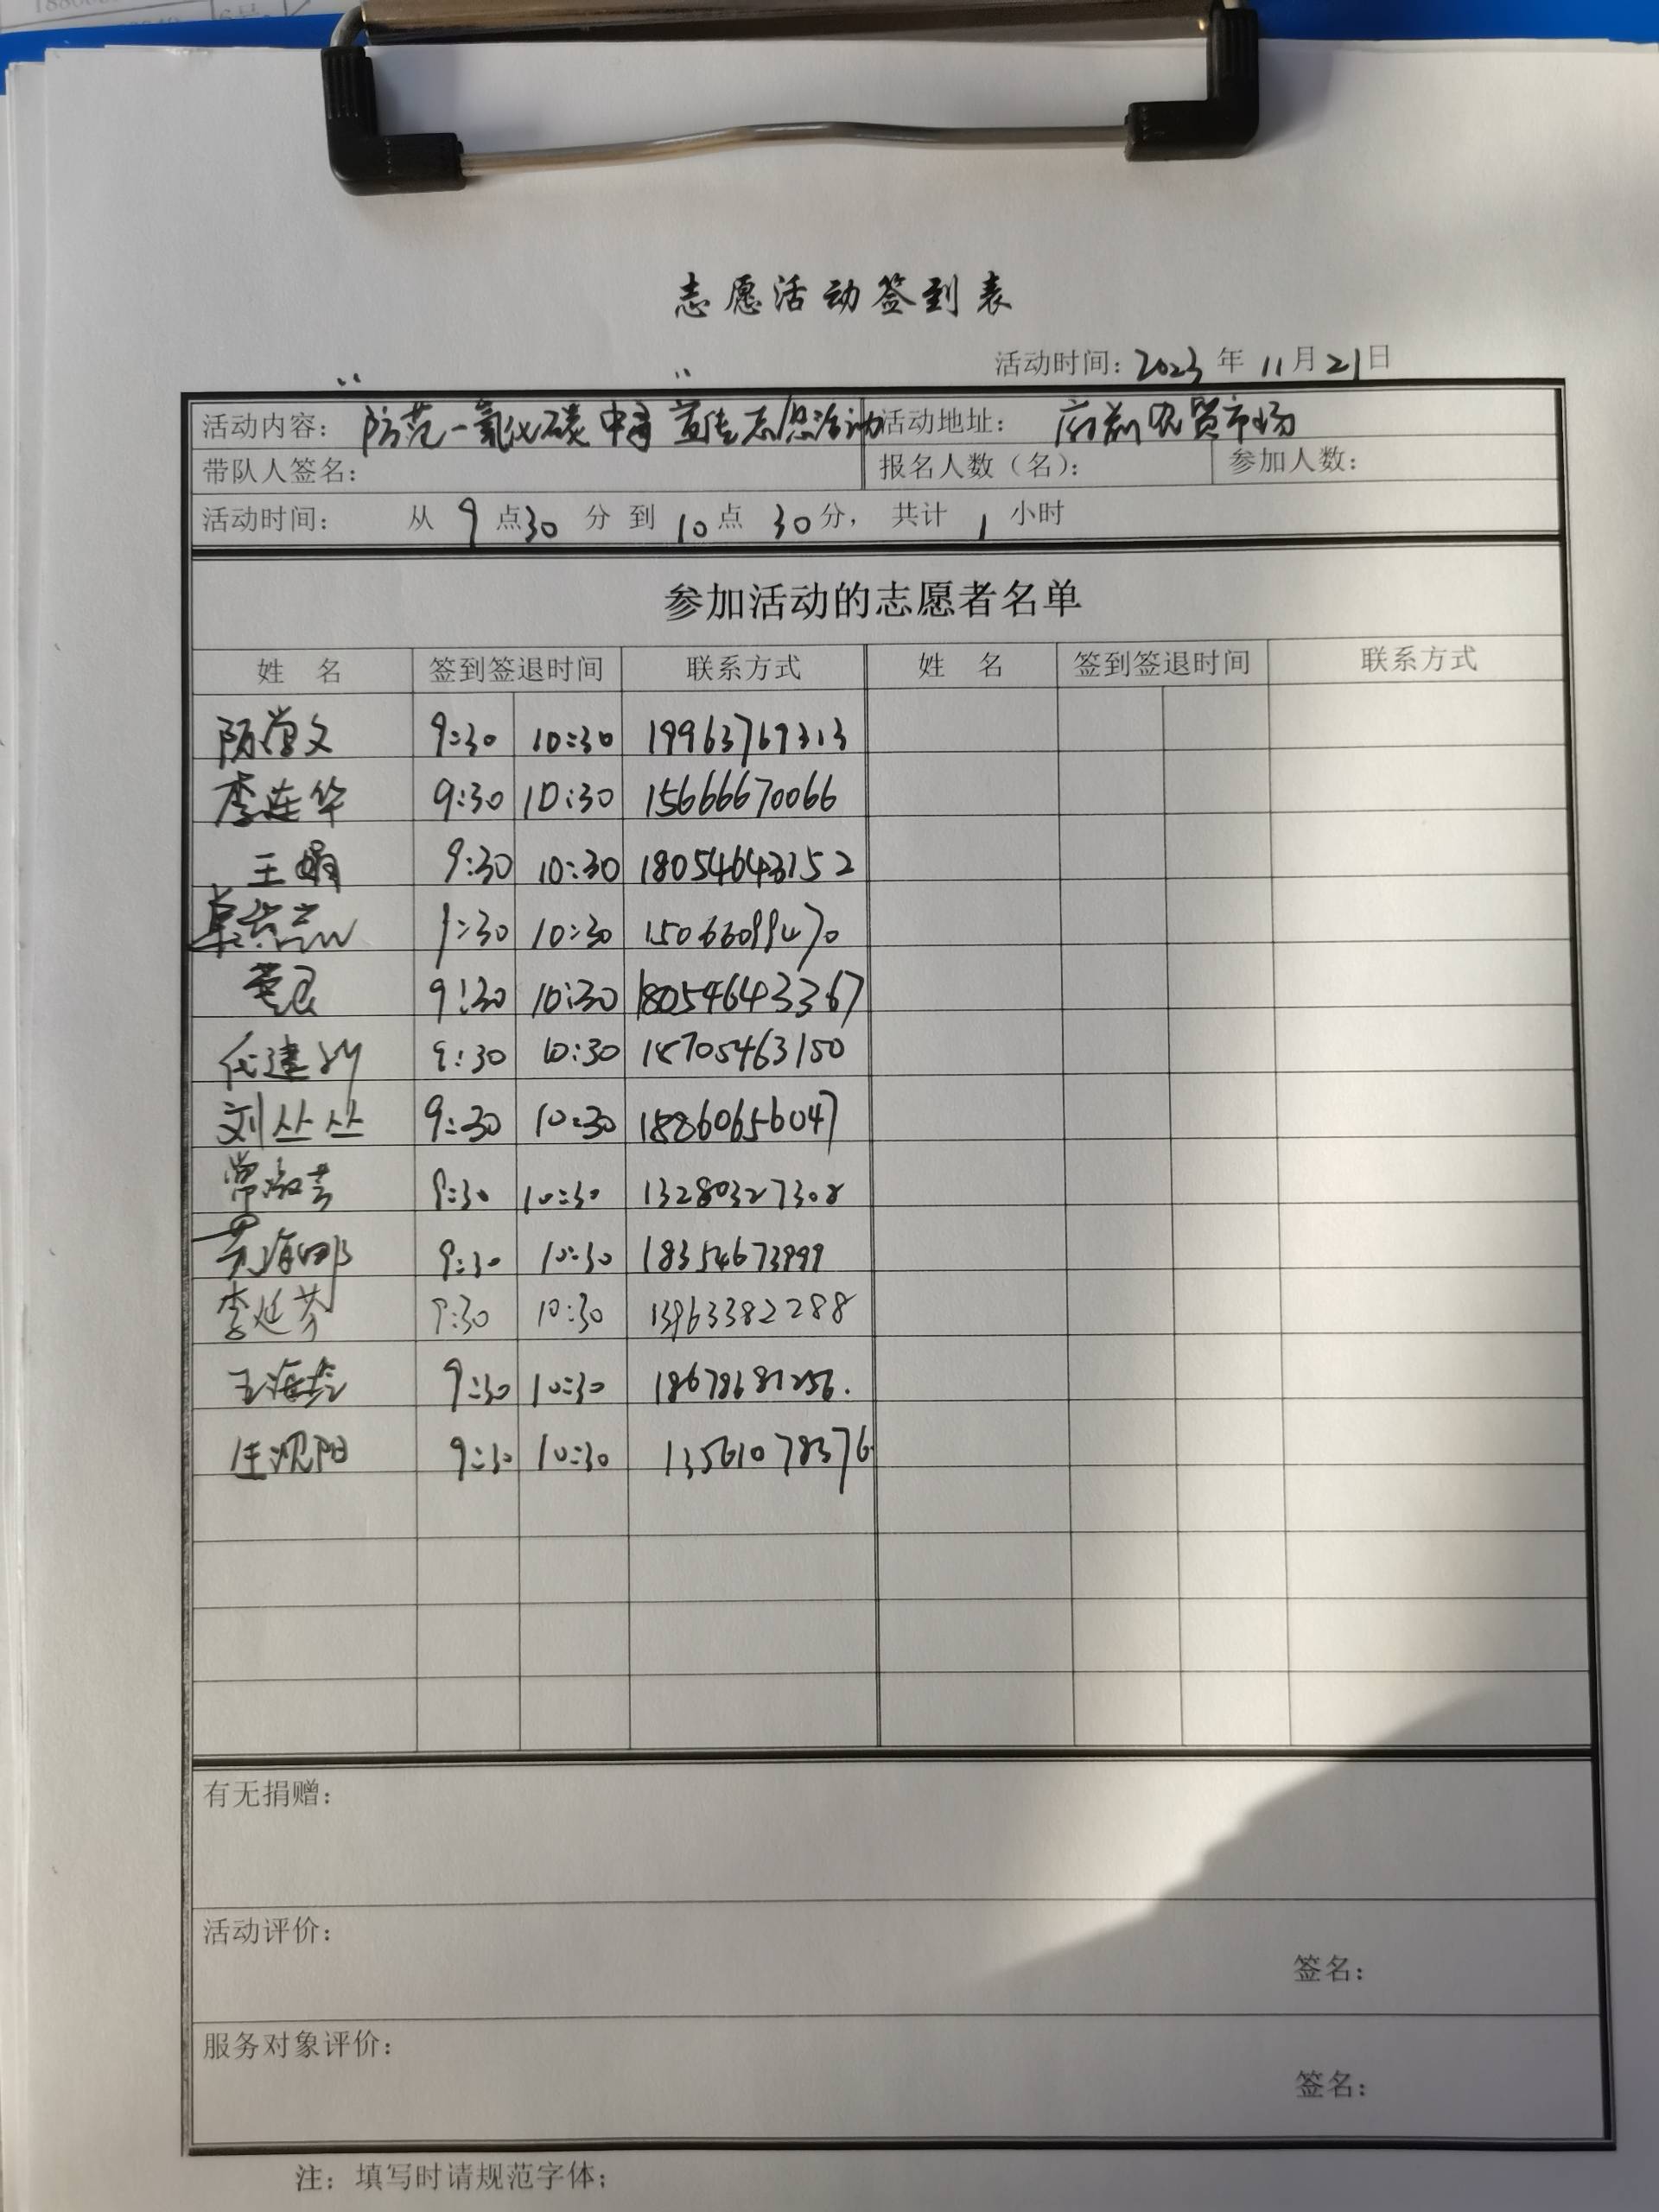 志愿活动签到表
活动时间：2023年11月21日
活动内容：防范一氧化碳中毒宣传志愿活动 活动地址：府前农贸市场
带队人签名： 报名人数（名）： 参加人数：
活动时间： 从9点30分到10点30分，共计1小时
参加活动的志愿者名单
姓 名 签到签退时间 联系方式 姓 名 签到签退时间 联系方式
9:30 10:30 19963769313
李连华 9:30 10:30 15666670066
王娟 9:30 10:30 18054643152
9:30 10:30 15066099470
9:30 10:30 18054643367
9:30 10:30 18705463150
刘丛丛 9:30 10:30 18860656047
常淑芸 9:30 10:30 13280327308
9:30 10:30 18354673999
李延芬 9:30 10:30 13963382288
9:30 10:30 18678681256.
任沈阳 9:30 10:30 13561078376
有无捐赠：
活动评价：
签名：
服务对象评价：
签名：
注：填写时请规范字体；